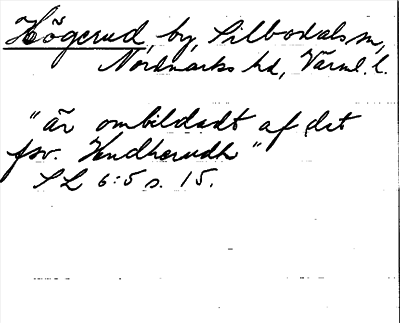 Högerud, by, Silbodals sn,
Nordmarks hd, Värml. l.
"är ombildadt af det
fsv. Hndherudh"
SL 6:5 s. 15.